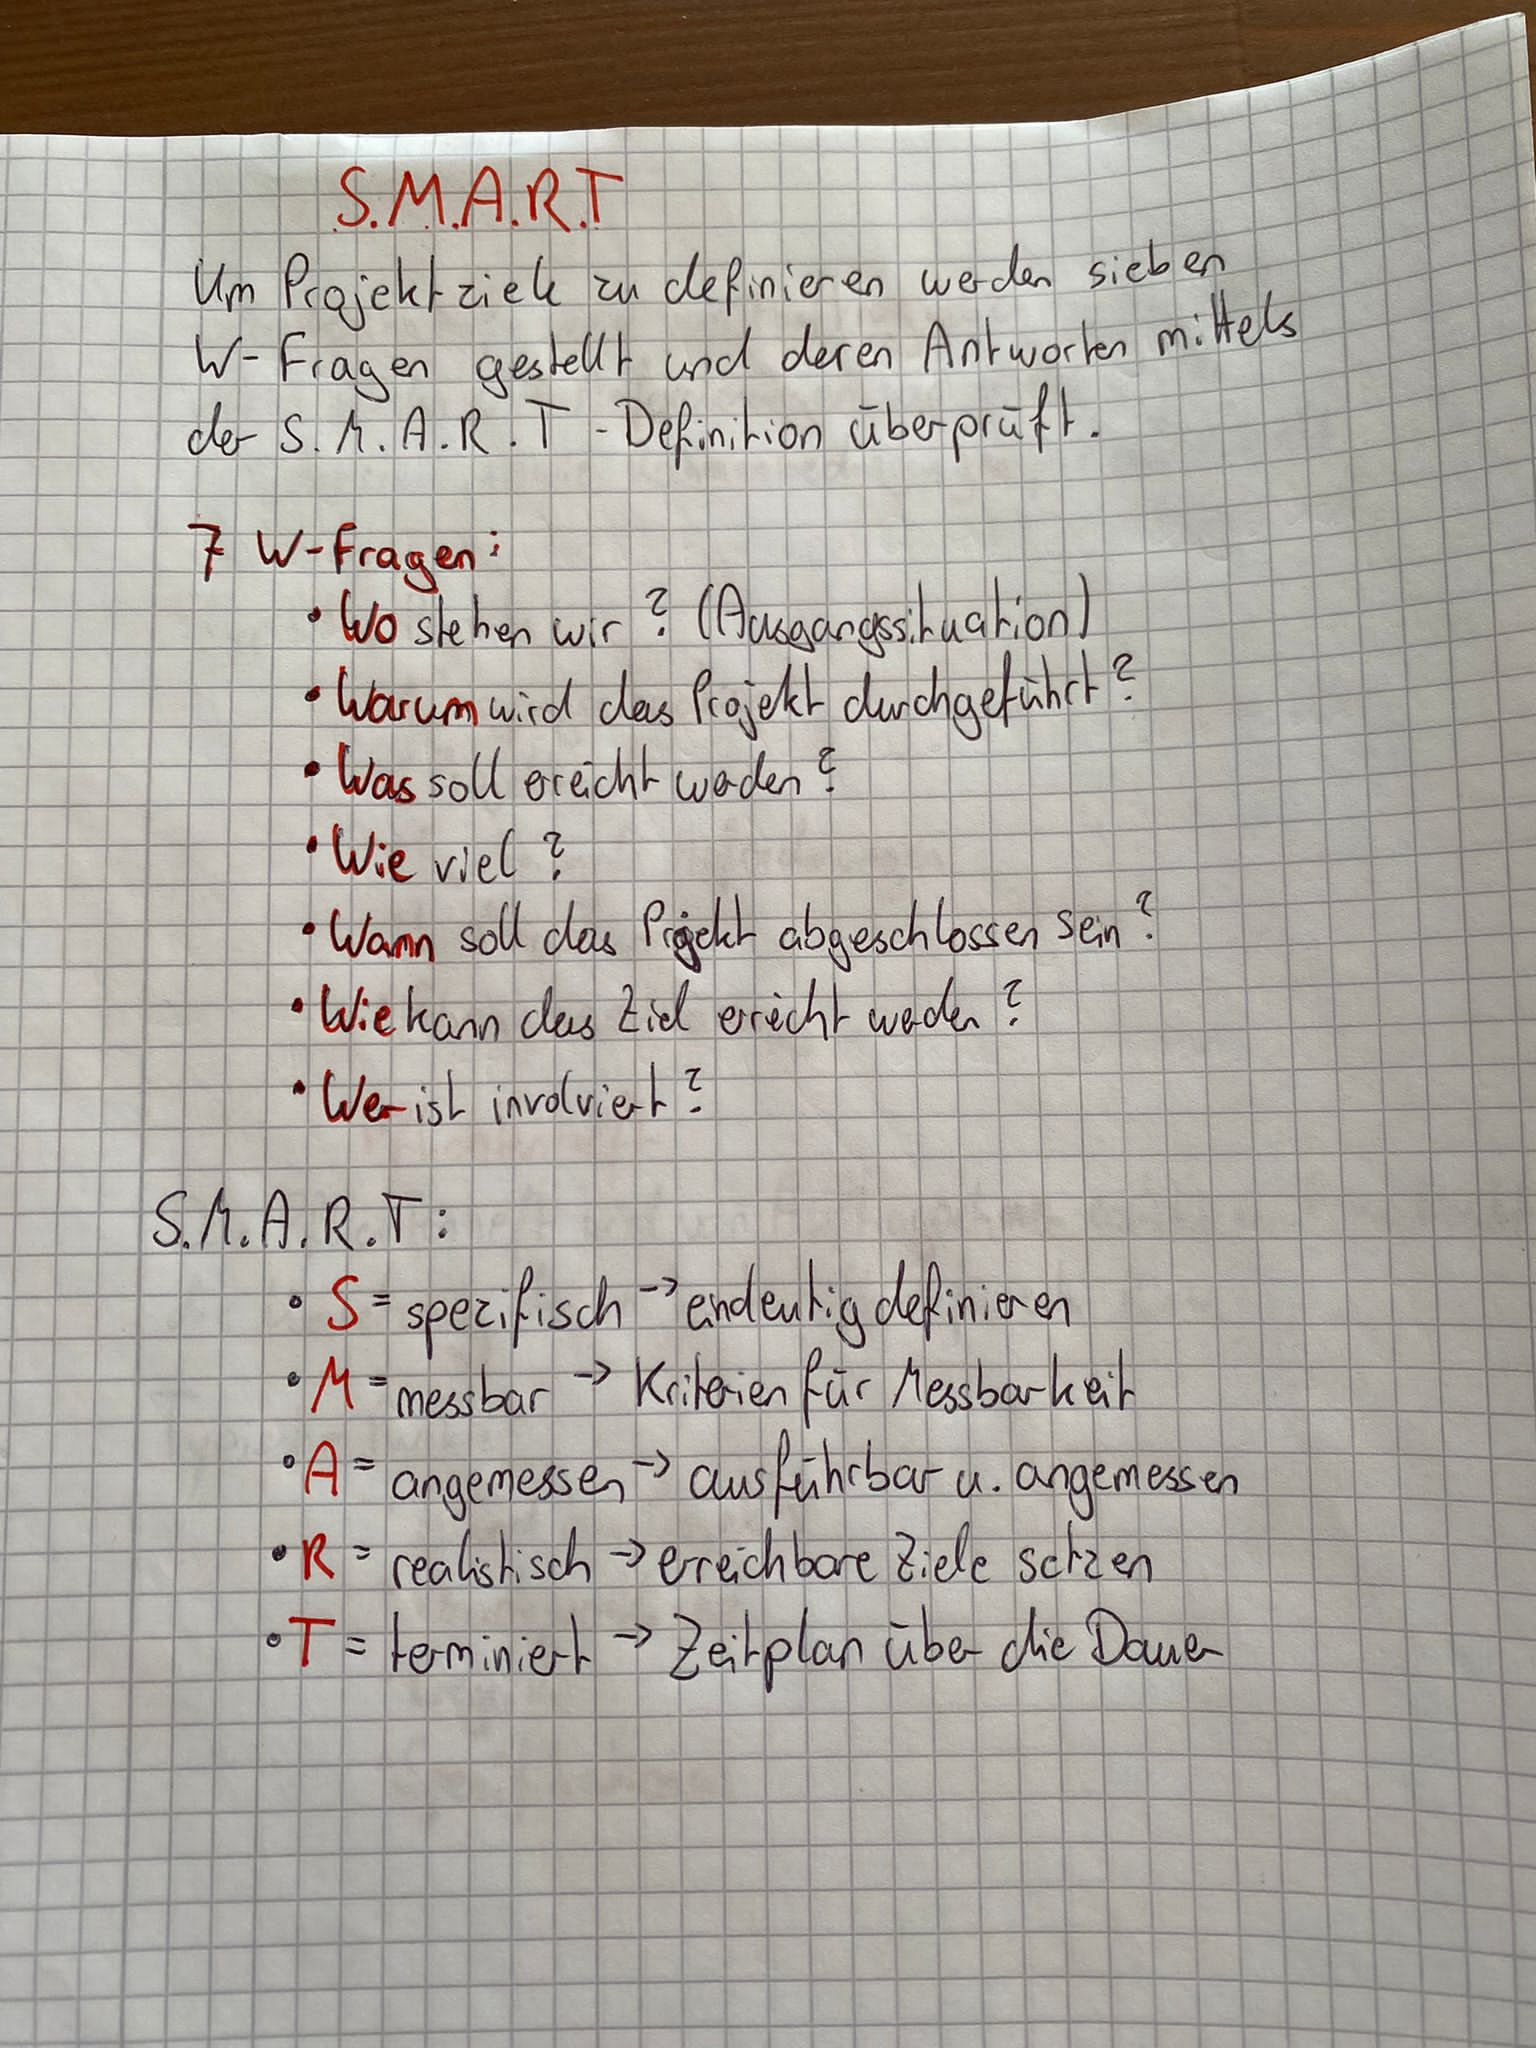 S.M.A.R.T
Um Projektziele zu definieren werden sieben
W-Fragen gestellt und deren Antworten mittels
der S.M.A.R.T-Definition überprüft.
7 W-Fragen:
• Wo stehen wir? (Ausgangssituation)
• Warum wird das Projekt durchgeführt?
• Was soll erreicht werden?
• Wie viel?
• Wann soll das Projekt abgeschlossen sein?
• Wie kann das Ziel erreicht werden?
• Wer ist involviert?
S.M.A.R.T:
• S = spezifisch → eindeutig definieren
• M = messbar → Kriterien für Messbarkeit
• A = angemessen → ausführbar u. angemessen
• R = realistisch → erreichbare Ziele setzen
• T = terminiert → Zeitplan über die Dauer